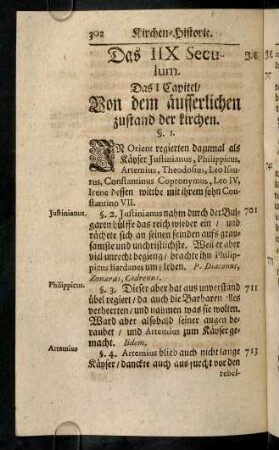 302 Kirchen-Historie.
Das IIX Secu-
lum.
Das I Capitel/
Von dem äusserlichen
zustand der kirchen.
§. 1.
IN Orient regierten dazumal als
Käyser Justinianus, Philippicus,
Artemius, Theodosius, Leo Isau-
rus, Constantinus Copronymus, Leo IV,
Irene dessen wittbe mit ihrem sohn Con-
stantino VII.
Justinianus. §. 2. Justinianus nahm durch der Bul- 701
garen hülffe das reich wieder ein/ und
rächete sich an seinen feinden auffs grau-
samste und unchristlichste. Weil er aber
viel unrecht begieng/ brachte ihn Philip-
picus Bardanes um s leben. P. Diaconus,
Zonaras, Cedrenus.
Philippicus. §. 3. Dieser aber hat aus unverstand 711
übel regiert/ da auch die Barbaren alles
verheerten/ und nahmen was sie wolten.
Ward aber alsobald seiner augen be-
raubet/ und Artemius zum Käyser ge-
macht. Iidem.
Artemius §. 4. Artemius blieb auch nicht lange 713
Käyser/ danckte auch aus furcht vor den
rebel-